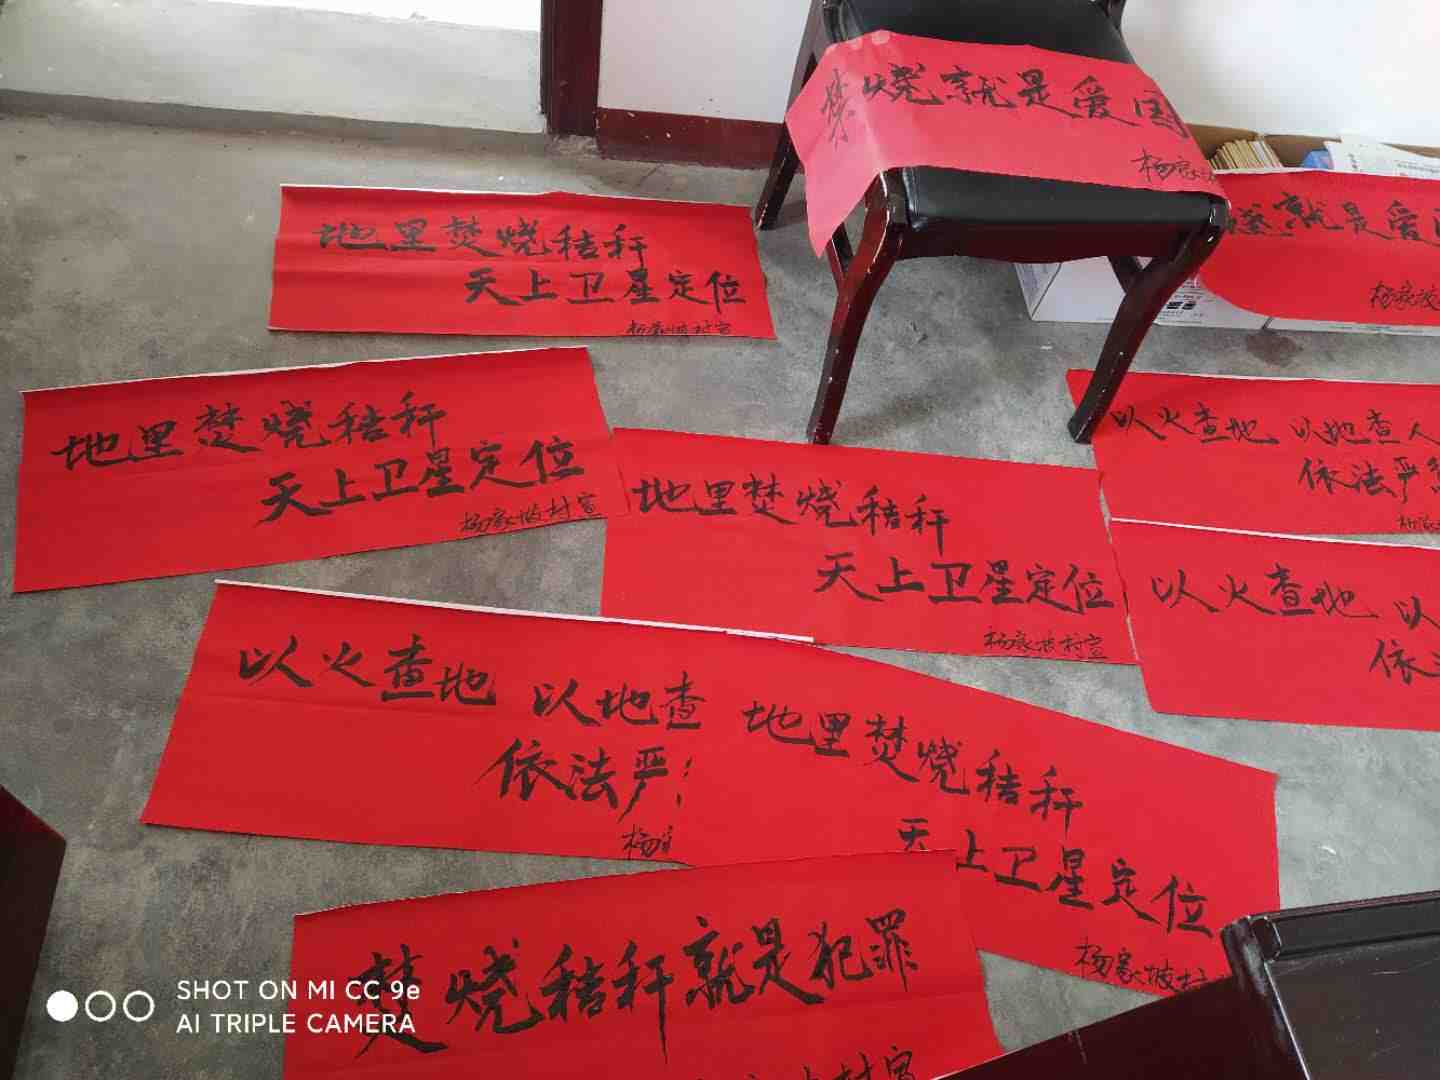 禁烧就是爱国
杨家坡
就是爱
杨家坡
地里焚烧秸秆
天上卫星定位
杨家坡村宣
地里焚烧秸秆
天上卫星定位
杨家坡村宣
地里焚烧秸秆
天上卫星定位
杨家坡村宣
以火查地 以地查人
依法严
以火查地 以
依法
以火查地 以地查
依法严
杨家
地里焚烧秸秆
天上卫星定位
杨家坡村
焚烧秸秆就是犯罪
村宣
SHOT ON MI CC 9e
AI TRIPLE CAMERA